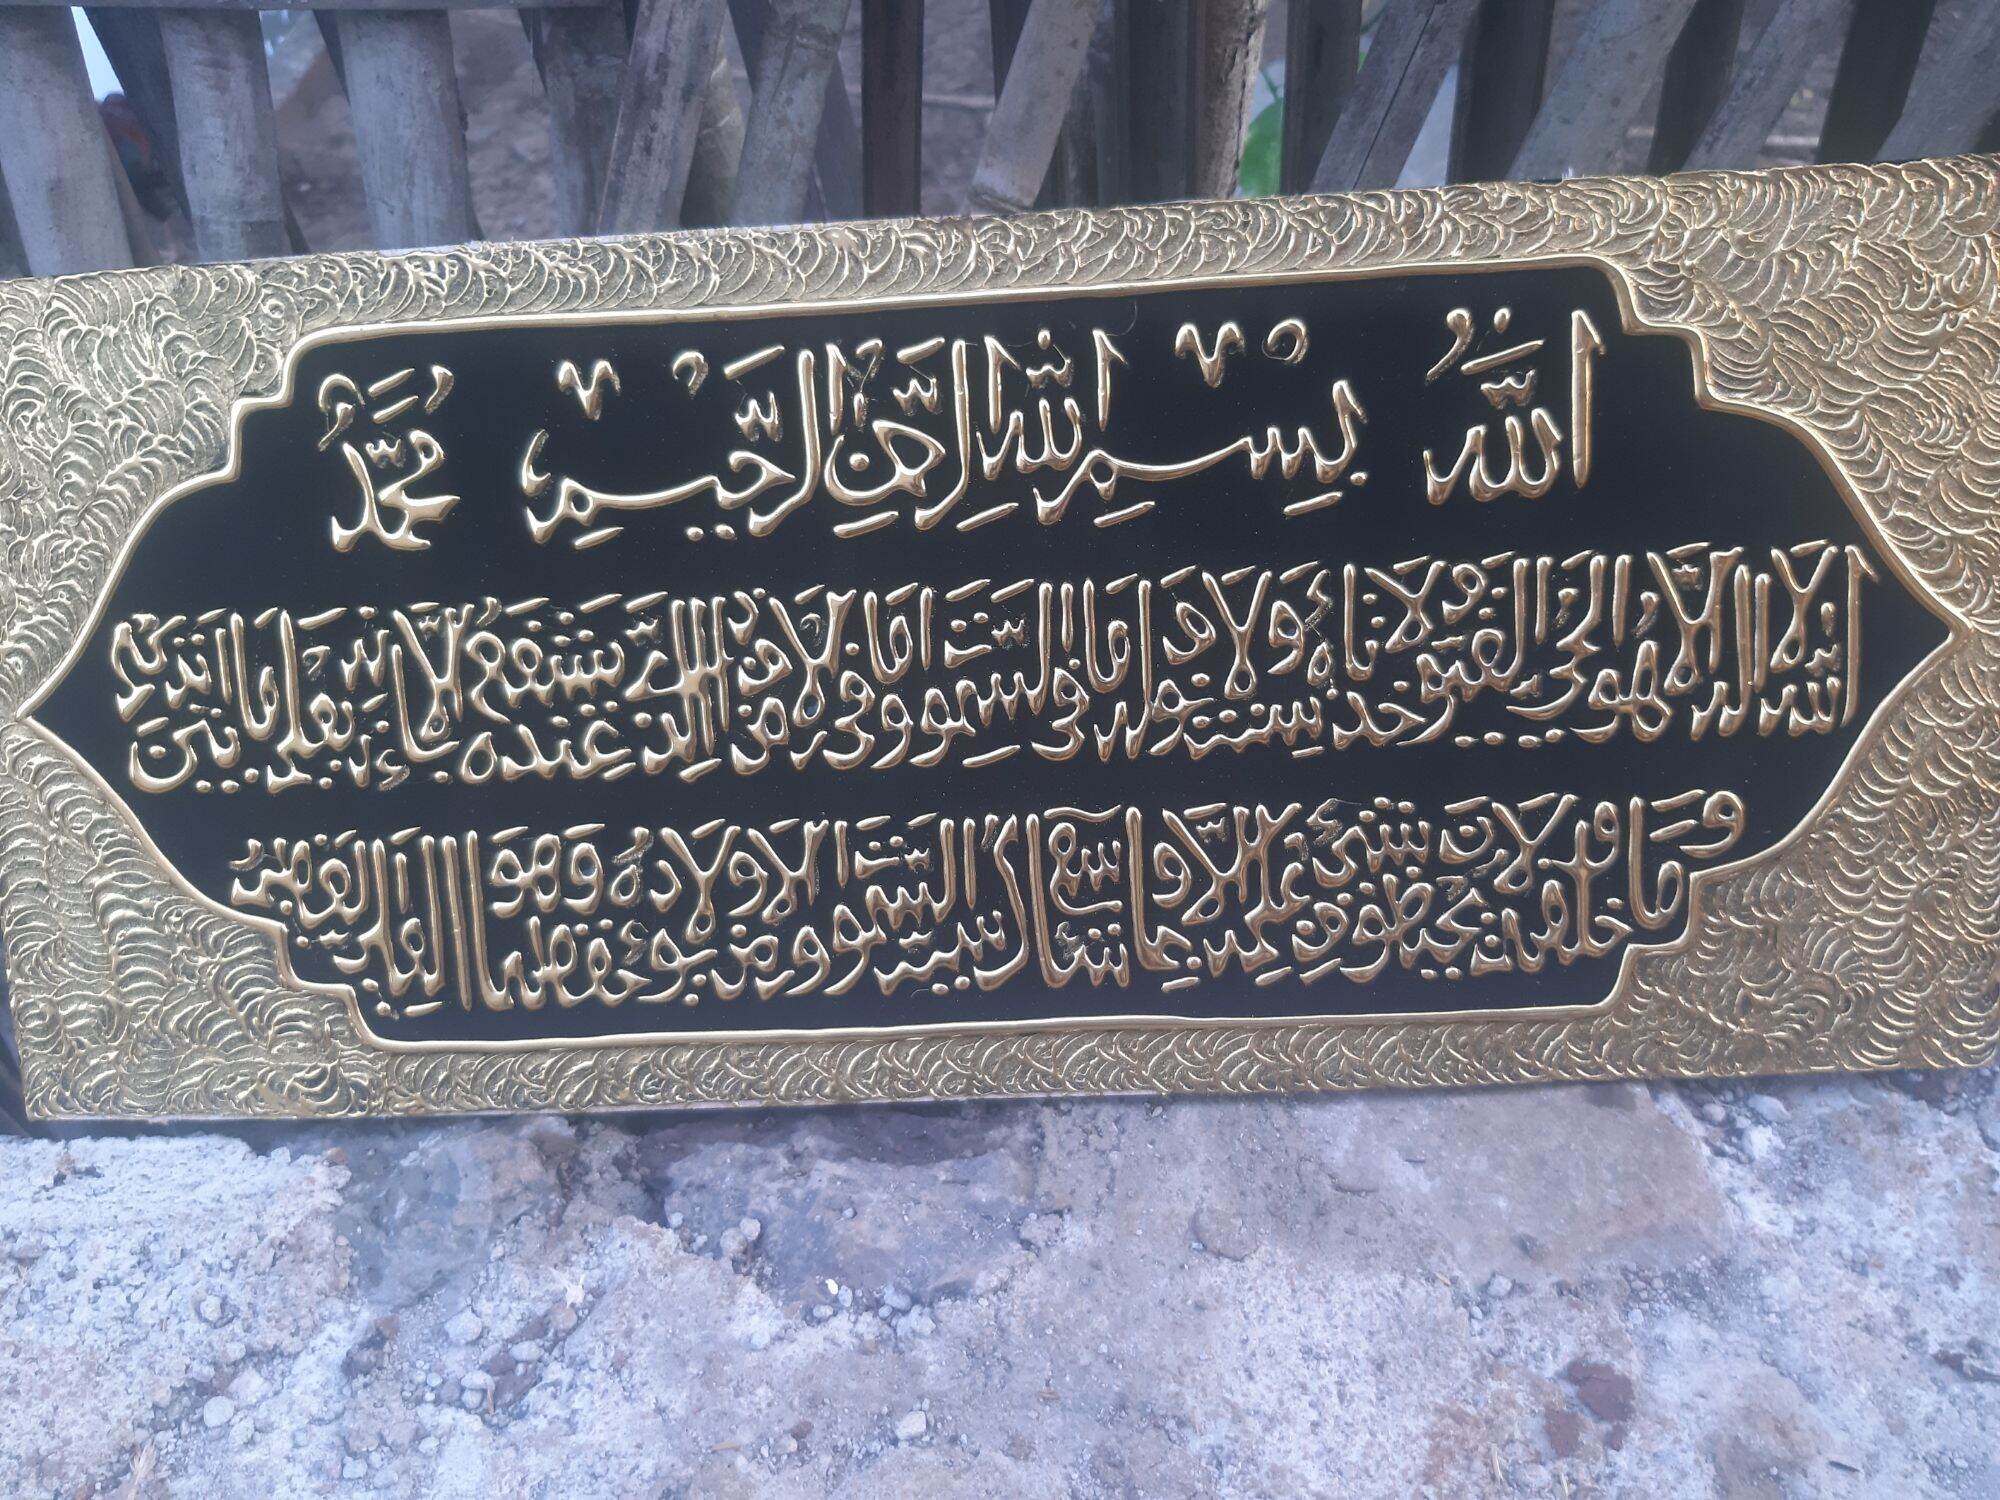 اللّٰهُ بِسْمِ اللّٰهِ الرَّحْمٰنِ الرَّحِيْمِ مُحَمَّدٌ
اللّٰه لا اله الا هو الحي القيوم لا تاخذه سنة ولا نوم له ما في السموت وما في الارض من ذا الذي يشفع عنده الا باذنه يعلم ما بين ايديهم
وما خلفهم ولا يحيطون بشيء من علمه الا بما شاء وسع كرسيه السموت والارض ولا يؤده حفظهما وهو العلي العظيم